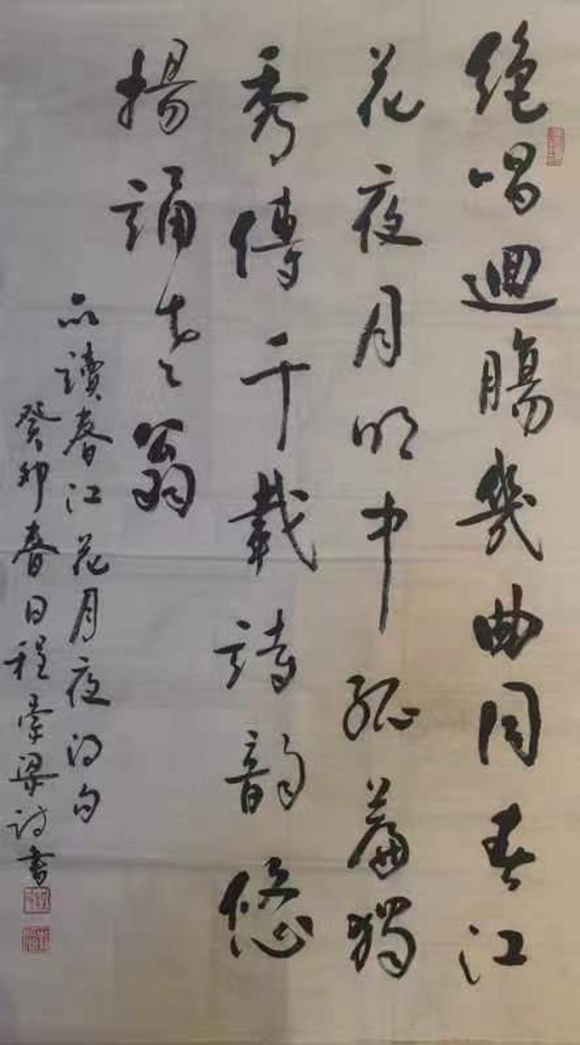 絶唱迴腸幾曲同春江
花夜月明中孤篇獨
秀傳千載詩韵悠
揚誦老翁
品讀春江花月夜得句
癸卯春日程梁詩書